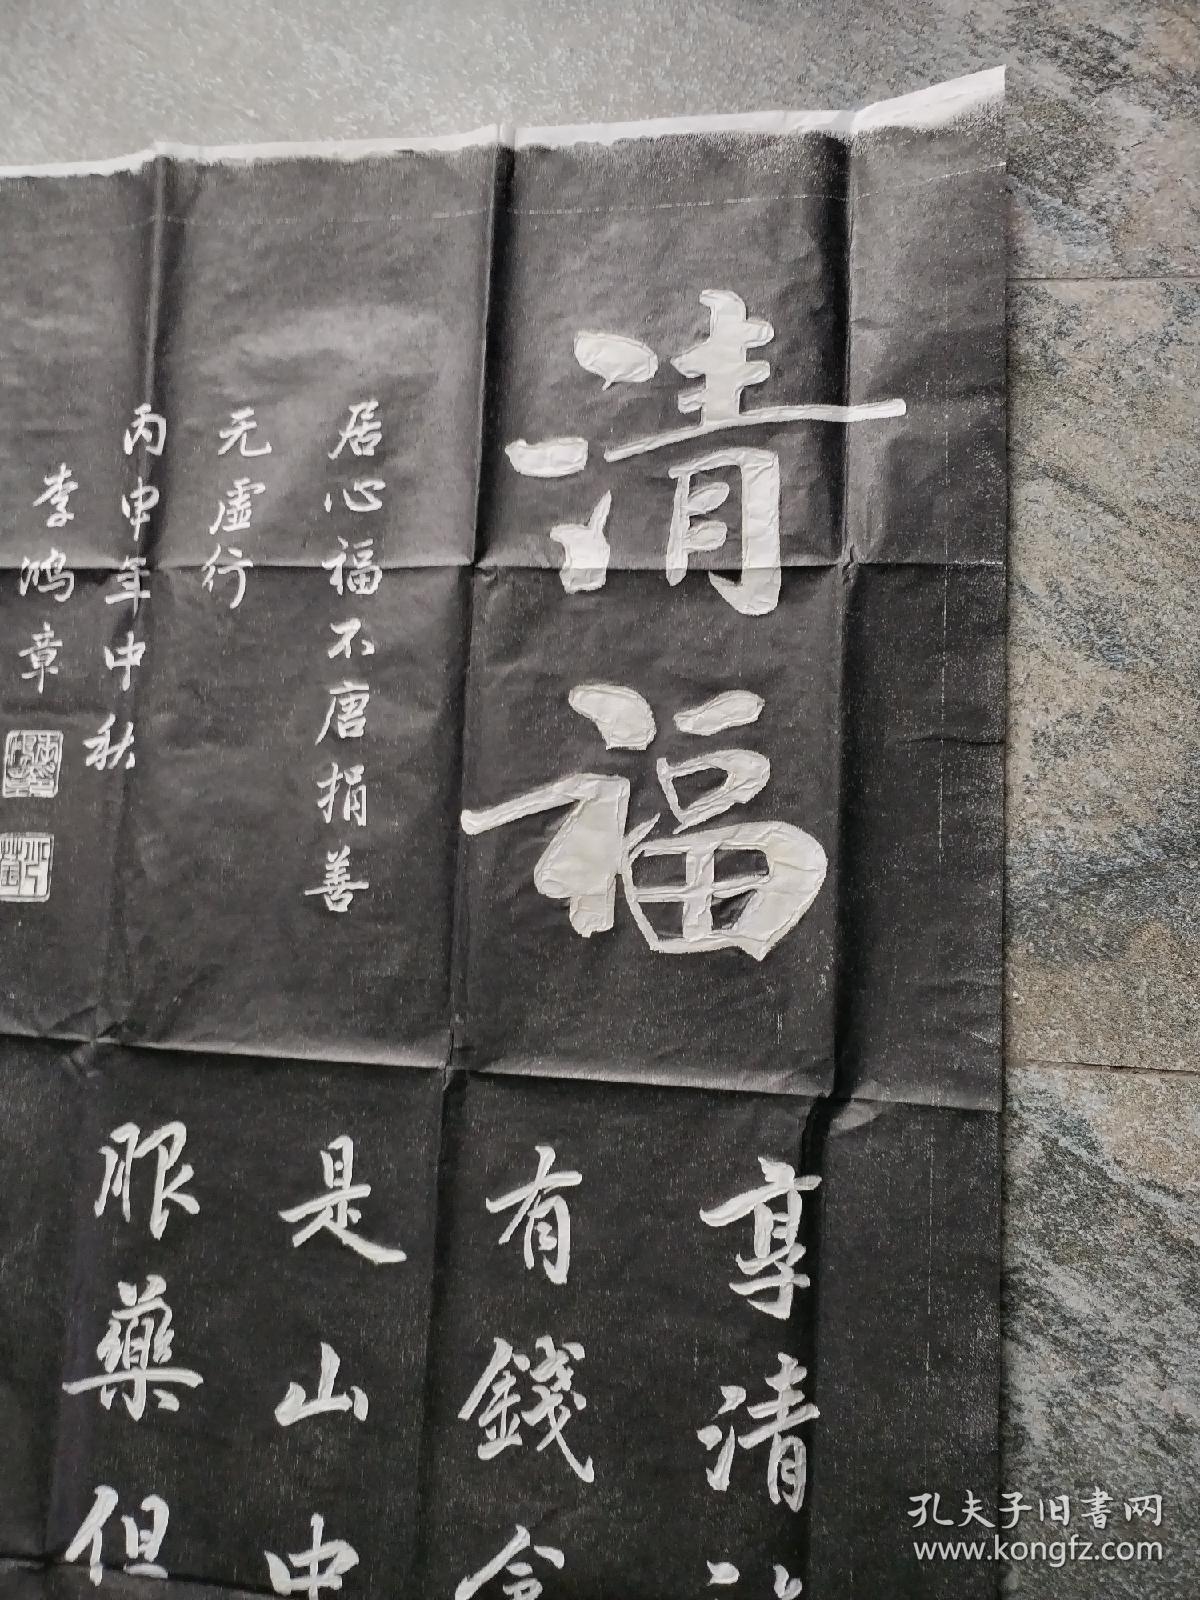 清福
居心福不唐捐善
无虚行
丙申年中秋
李鸿章
享清
有錢令
是山中
服藥但
孔夫子旧書网
www.kongfz.com